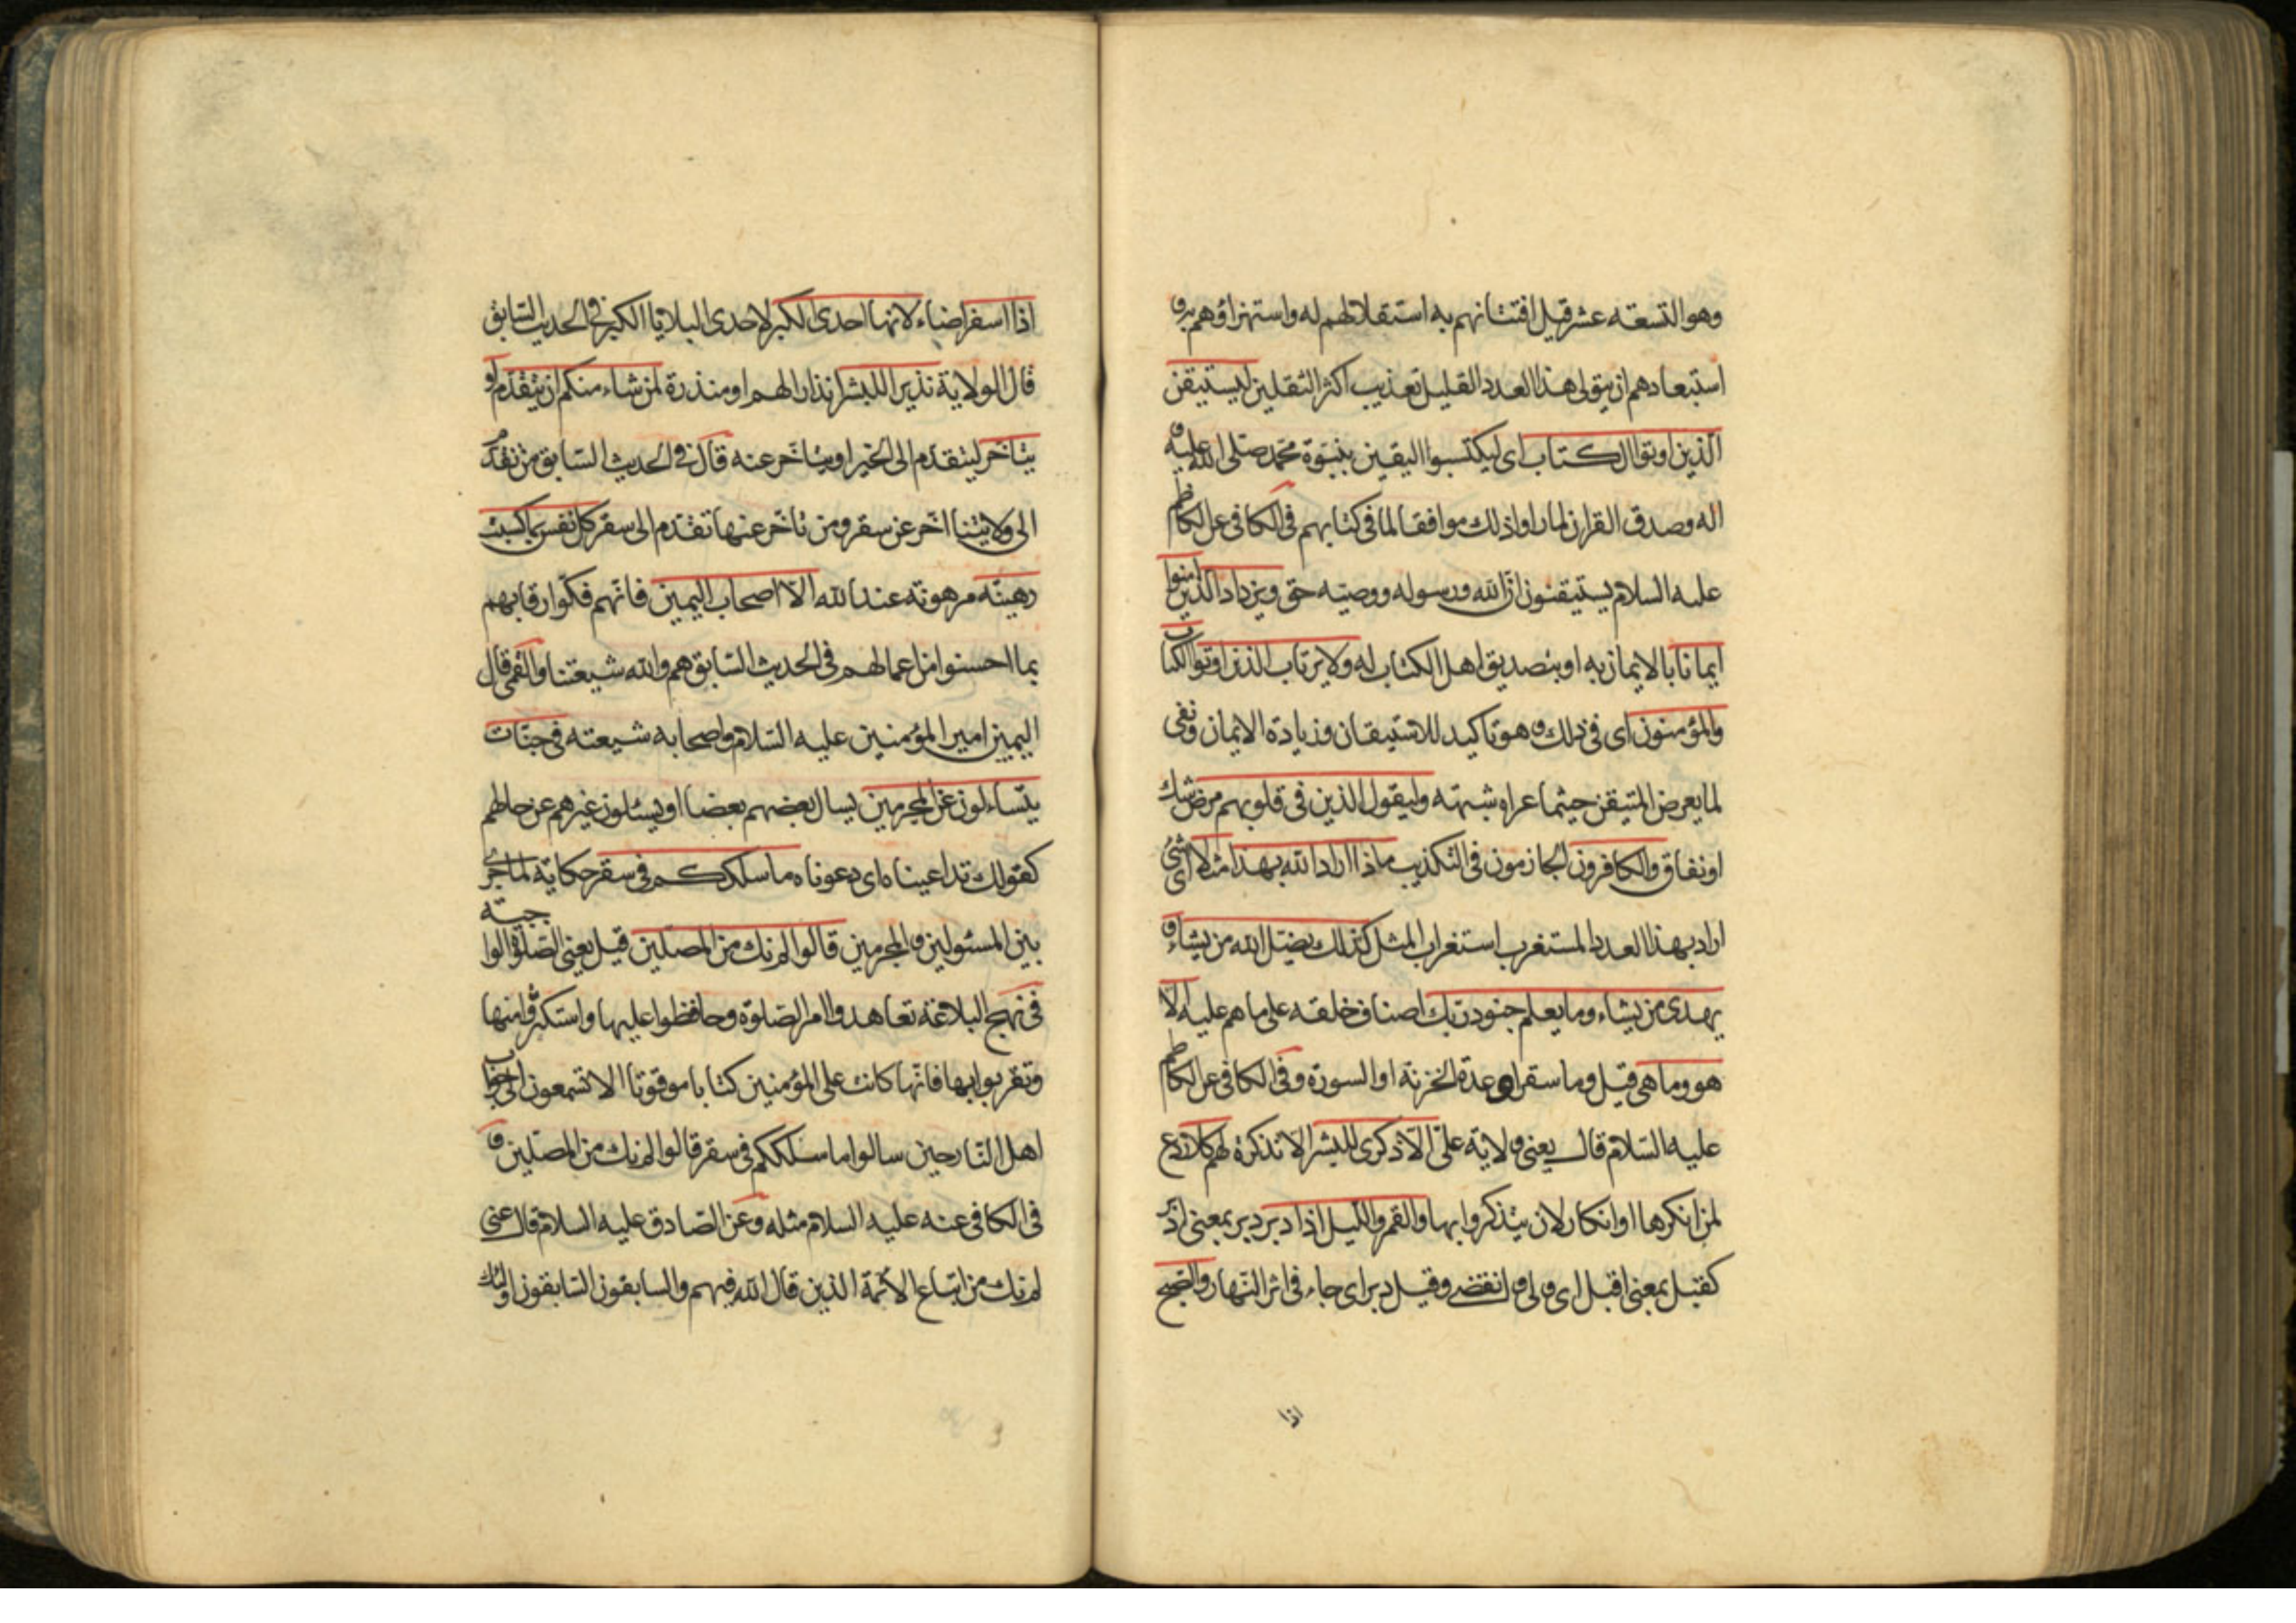 وهو التسعة عشر قيل افتتانهم به استقلالهم له واستهزاؤهم به و
استبعادهم ان يتولى هذا العدد القليل تعذيب اكثر الثقلين ليستيقن
الّذين اوتوا الكتاب اى ليكتسبوا اليقين بنبوّة محمّد صلى الله عليه و
اله وصدق القران لما راوا ذلك موافقا لما فى كتابهم فى الكافى عن الكاظم
عليه السلام يستيقنون انّ الله ورسوله ووصيّه حق ويزداد الّذين امنوا
ايمانا بالايمان به او بتصديق اهل الكتاب له ولا يرتاب الذين اوتوا الكتاب
والمؤمنون اى فى ذلك وهو تاكيد للاستيقان وزيادة الايمان ونفى
لما يعرض المتيقن حيثما عراه شبهة وليقول الذين فى قلوبهم مرض شك
او نفاق والكافرون الجازمون فى التكذيب ماذا اراد الله بهذا مثلا اى شئ
اراد بهذا العدد المستغرب استغراب المثل كذلك يضلّ الله من يشاء و
يهدى من يشاء وما يعلم جنود ربّك اصناف خلقه على ما هم عليه الّا
هو وما هى قيل وما سقر او عدة الخزنة او السورة وفى الكافى عن الكاظم
عليه السّلام قال يعنى ولاية علىّ الّا ذكرى للبشر الا تذكرة لهم كلا ردع
لمن انكرها او انكار لان يتذكروا بها والقمر واللّيل اذا دبر دبر بمعنى ادبر
كقبل بمعنى اقبل اى ولى وانقضى وقيل دبر اى جاء فى اثر النّهار والصّبح
اذا
اذا اسفر اضاء لانها احدى الكبر لاحدى البلايا الكبر فى الحديث السّابق
قال الولاية نذيرا للبشر انذارا لهم او منذرة لمن شاء منكم ان يتقدّم او
يتاخّر ليتقدّم الى الخير او يتاخّر عنه قال فى الحديث السّابق من تقدّم
الى ولايتنا اخّر عن سقر ومن تاخّر عنها تقدّم الى سقر كل نفس بما كسبت
رهينة مرهونة عند الله الّا اصحاب اليمين فانّهم فكّوا رقابهم
بما احسنوا من اعمالهم فى الحديث السّابق هم والله شيعتنا والقمى قال
اليمين امير المؤمنين عليه السّلام واصحابه شيعته فى جنّات
يتساءلون عن المجرمين يسال بعضهم بعضا او يسئلون غيرهم عن حالهم
كقولك تداعيناه اى دعوناه ما سلككم فى سقر حكاية لما جرى
بين المسئولين والمجرمين اجابوا بها قالوا لم نك من المصلّين قيل يعنى الصّلوة الواجبة
فى نهج البلاغة تعاهدوا امر الصّلوة وحافظوا عليها واستكثروا منها
وتقربوا بها فانّها كانت على المؤمنين كتابا موقوتا الا تسمعون الى جواب
اهل النّار حين سالوا ما سلككم فى سقر قالوا لم نك من المصلّين و
فى الكافى عنه عليه السلام مثله وعن الصّادق عليه السلام قال عنى
لم نك من اتباع الائمّة الذين قال الله فيهم والسابقون السّابقون اولئك